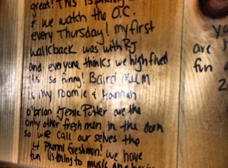 great! This is
& we watch the O.C.
every Thursday! my first
walkback was with PJ
and everyone thinks we high fived
its so funny! Baird
is my roomie & Hannah
o'brian & Jenie Potter are the
only other freshmen in the dorm
so we call our selves the
Freshmen! we have
fun listening to music
are
fun